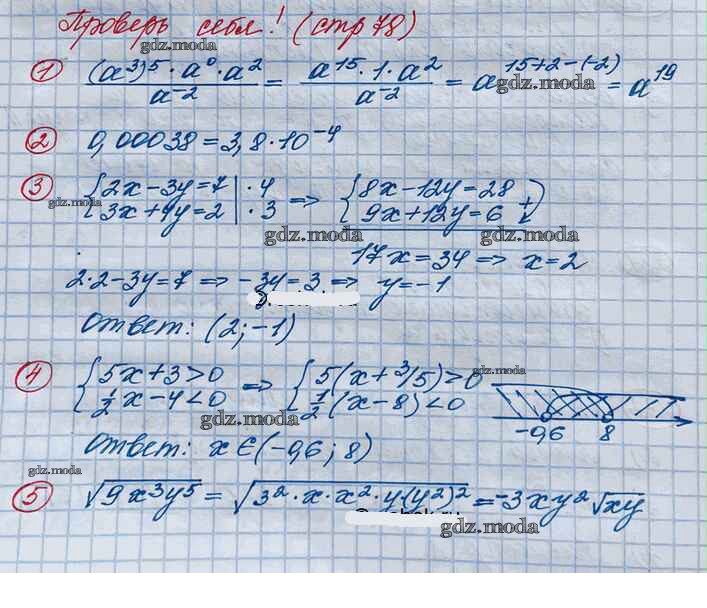 Проверь себя! (стр 78)
gdz.moda
① (a³)⁵ · a⁰ · a² / a⁻² = a¹⁵ · 1 · a² / a⁻² = a¹⁵⁺²⁻⁽⁻²⁾ = a¹⁹
gdz.moda
② 0,00038 = 3,8 · 10⁻⁴
③ { 2x – 3y = 7 | · 4 => { 8x – 12y = 28
3x + 4y = 2 | · 3 9x + 12y = 6 +
gdz.moda
gdz.moda gdz.moda
17x = 34 => x = 2
2·2 – 3y = 7 => – 3y = 3 => y = – 1
Ответ: (2; –1)
④ { 5x + 3 > 0 => { 5(x + 3/5) > 0
gdz.moda
½x – 4 < 0 ½(x – 8) < 0
gdz.moda
–0,6 8
Ответ: x ∈ (–0,6; 8)
gdz.moda
⑤ √9x³y⁵ = √3² · x · x² · y(y²)² = –3xy² √xy
gdz.moda